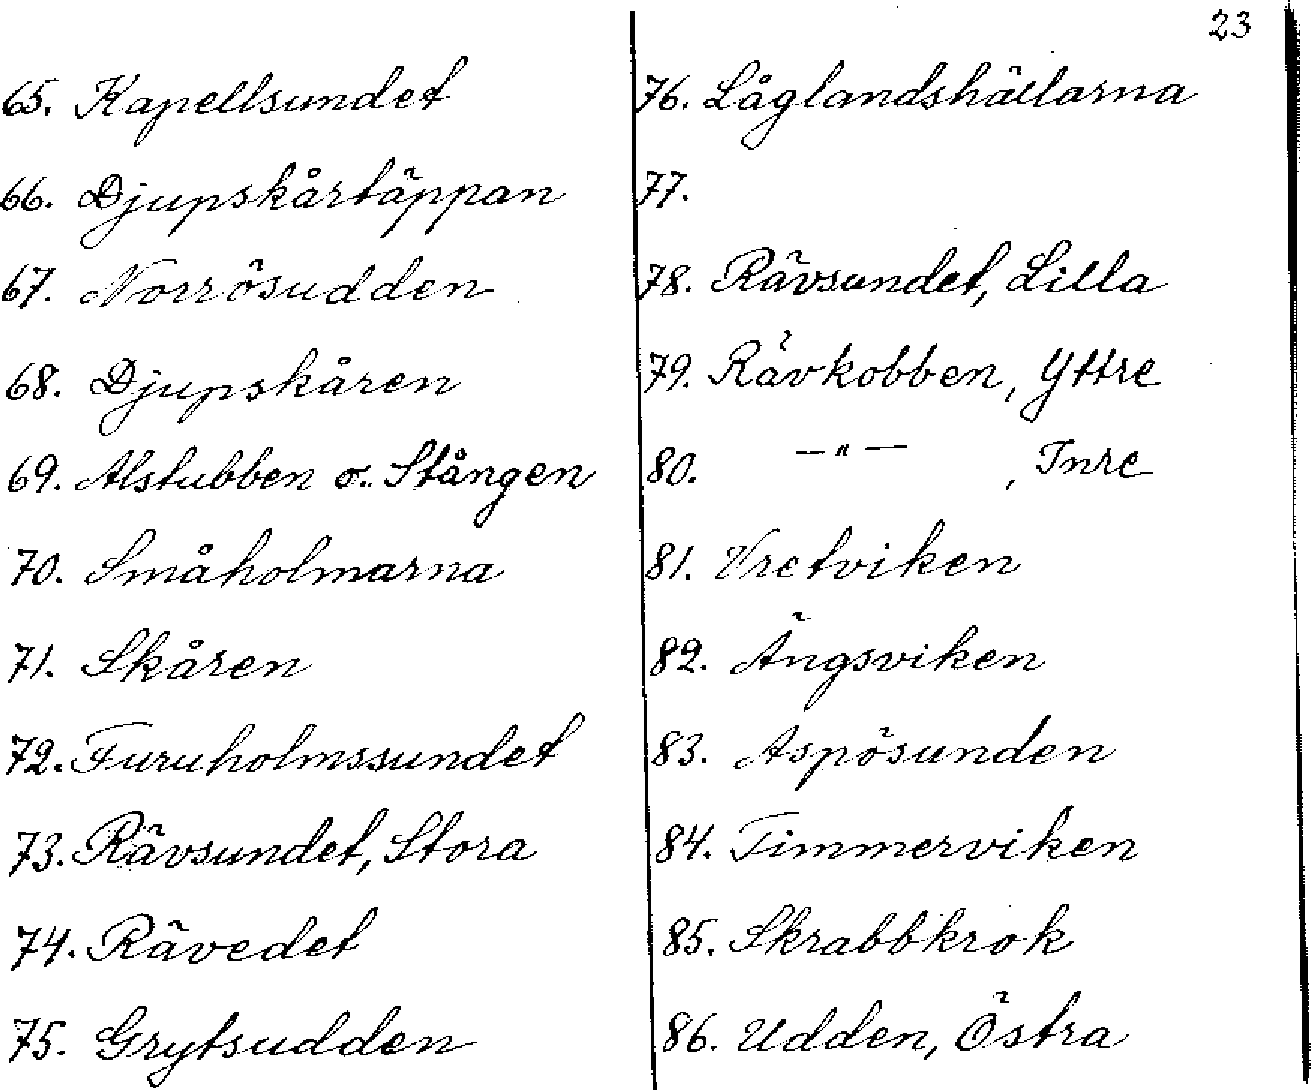 23
65. Kapellsundet
66. Djupskårtäppan
67. Norrösudden
68. Djupskåren
69. Alstubben o. Stången
70. Småholmarna
71. Skåren
72. Furuholmssundet
73. Rävsundet, Stora
74. Rävedet
75. Grytsudden
76. Låglandshällarna
77.
78. Rävsundet, Lilla
79. Rävkobben, Yttre
80. —"— , Inre
81. Vretviken
82. Ängsviken
83. Aspösunden
84. Timmerviken
85. Skrabbkrok
86. Udden, Östra